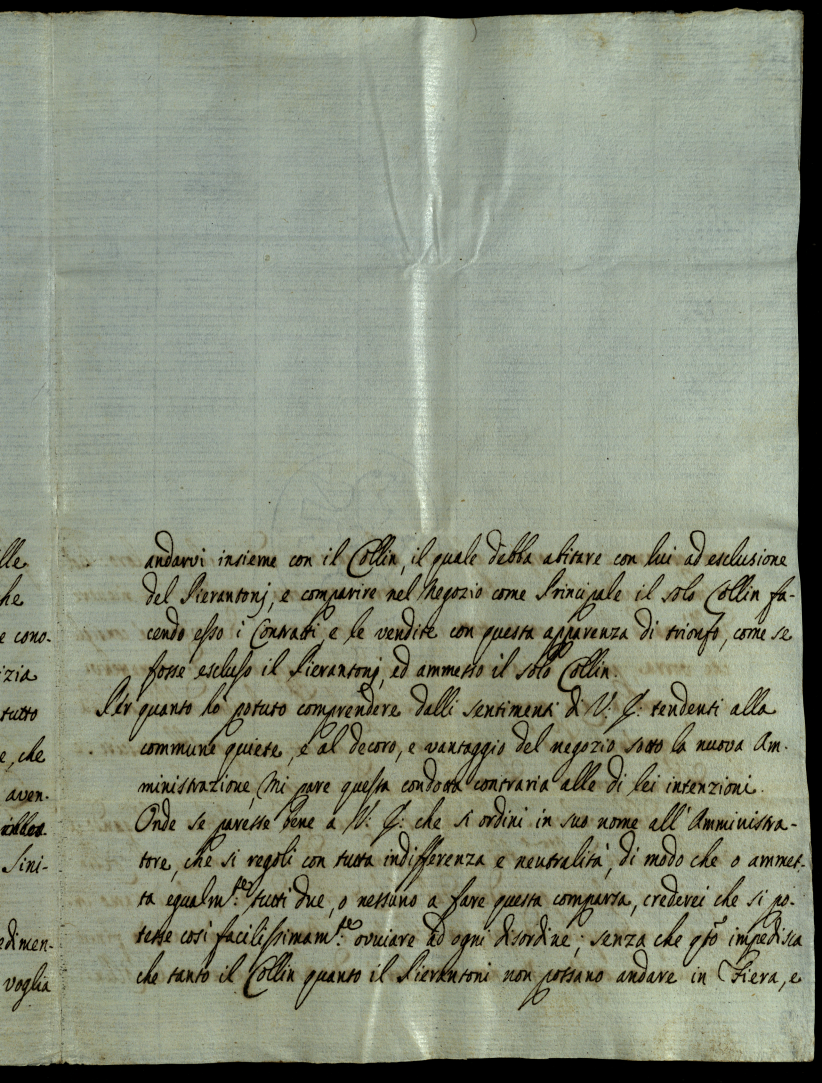 lle
he
e cono-
izia
tutto
e, che
aven-
Sini-
edimen-
voglia
andarvi insieme con il Collin, il quale debba abitare con lui ad esclusione
del Pierantonj, e comparire nel Negozio come Principale il solo Collin fa-
cendo esso i Contratti, e le vendite con questa apparenza di trionfo, come se
fosse escluso il Pierantonj, ed ammesso il solo Collin.
Per quanto hò potuto comprendere dalli sentimenti di V: S: tendenti alla
commune quiete, e al decoro, e vantaggio del negozio sotto la nuova Am-
ministrazione, Mi pare questa condotta contraria alle di lei intenzioni.
Onde se paresse bene a V: S: che si ordini in suo nome all'Amministra-
tore, che si regoli con tutta indifferenza e neutralità, di modo che o ammet-
ta egualm.te tutti due, o nessuno a fare questa comparsa, crederei che si po-
tesse così facilissimam.te ovviare ad ogni disordine; senza che qto impedisca
che tanto il Collin quanto il Pierantoni non possano andare in Fiera, e